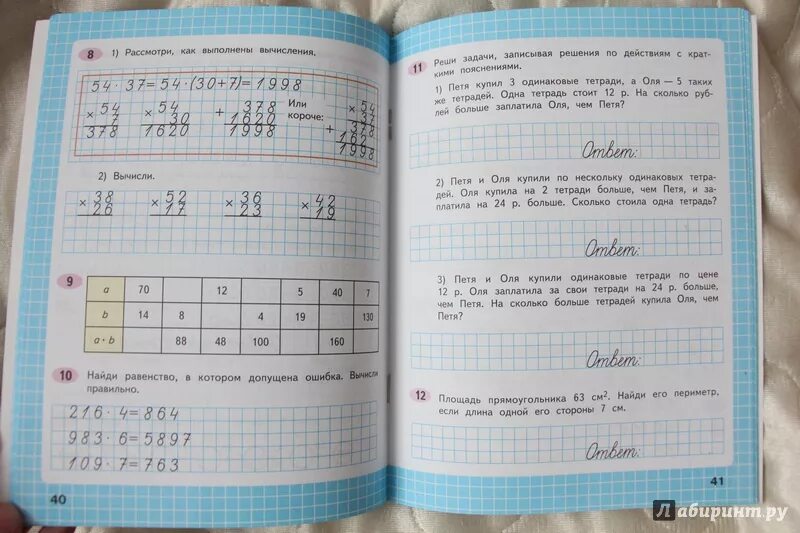 8 1) Рассмотри, как выполнены вычисления.
54 · 37 = 54 · (30 + 7) = 1998
× 54 × 54 + 378 Или × 54
7 30 1620 короче: 37
378 1620 1998 + 378
162
1998
2) Вычисли.
× 38 × 52 × 36 × 42
26 17 23 19
9
a 70 12 5 40 7
b 14 8 4 19 130
a · b 88 48 100 160
10 Найди равенство, в котором допущена ошибка. Вычисли
правильно.
216 · 4 = 864
983 · 6 = 5897
109 · 7 = 763
40
11 Реши задачи, записывая решения по действиям с крат-
кими пояснениями.
1) Петя купил 3 одинаковые тетради, а Оля — 5 таких
же тетрадей. Одна тетрадь стоит 12 р. На сколько руб-
лей больше заплатила Оля, чем Петя?
Ответ:
2) Петя и Оля купили по нескольку одинаковых тетра-
дей. Оля купила на 2 тетради больше, чем Петя, и за-
платила на 24 р. больше. Сколько стоила одна тетрадь?
Ответ:
3) Петя и Оля купили одинаковые тетради по цене
12 р. Оля заплатила за свои тетради на 24 р. больше,
чем Петя. На сколько больше тетрадей купила Оля, чем
Петя?
Ответ:
12 Площадь прямоугольника 63 см². Найди его периметр,
если длина одной его стороны 7 см.
Ответ:
41
Лабиринт.ру